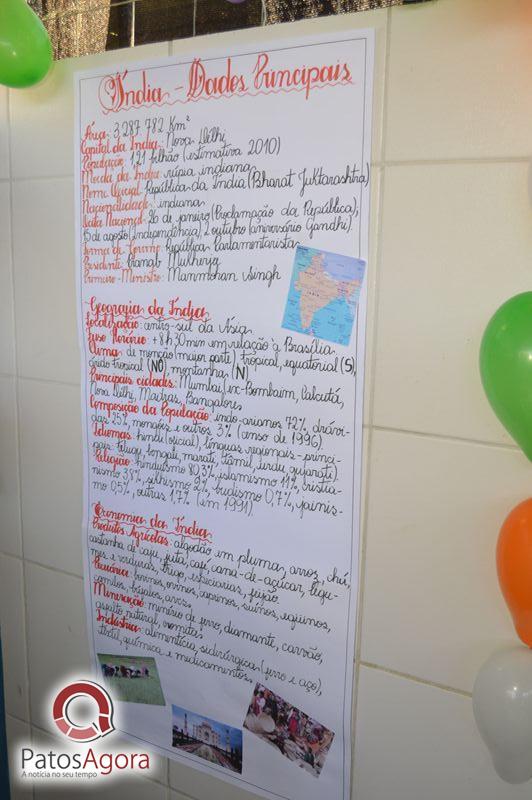 Índia - Dados Principais
Área: 3.287.782 Km²
Capital da Índia: Nova Délhi
População: 1,21 bilhão (estimativa 2010)
Moeda da Índia: rúpia indiana
Nome Oficial: República da Índia (Bharat Juktarashtra)
Nacionalidade: indiana
Data Nacional: 26 de janeiro (Proclamação da República),
15 de agosto (Independência), 2 outubro (aniversário Gandhi).
Forma de Governo: República Parlamentarista
Presidente: Pranab Mulherja
Primeiro-Ministro: Manmohan Singh
Geografia da Índia
Localização: centro-sul da Ásia
Fuso Horário: +8h30min em relação à Brasília
Clima: de monção (maior parte), tropical, equatorial (S),
árido tropical (NO), montanha, (N)
Principais cidades: Mumbai (ex-Bombaim, Calcutá,
Nova Délhi, Madras, Bangalore.
Composição da População: indo-arianos 72%, drávi-
das 25%, mongóis e outros 3% (censo de 1996).
Idiomas: hindi (oficial), línguas regionais-princi-
pais: telugu, bengali, marati, tâmil, urdu, gujarati)
Religião: hinduísmo 80,3%, islamismo 11%, cristia-
nismo 3,8%, sikhismo 2%, budismo 0,7%, jainis-
mo 0,5%, outras 1,7% (em 1991).
Economia da Índia
Produtos Agrícolas: algodão em pluma, arroz, chá,
castanha de caju, juta, café, cana-de-açúcar, legu-
mes e verduras, trigo, especiarias, feijão.
Pecuária: bovinos, ovinos, caprinos, suínos, equinos,
camelos, búfalos, aves.
Mineração: minério de ferro, diamante, carvão,
asfalto natural, cromita.
Indústria: alimentícia, siderúrgica (ferro e aço),
têxtil, química e medicamentos.
INDIA
PatosAgora
A notícia no seu tempo